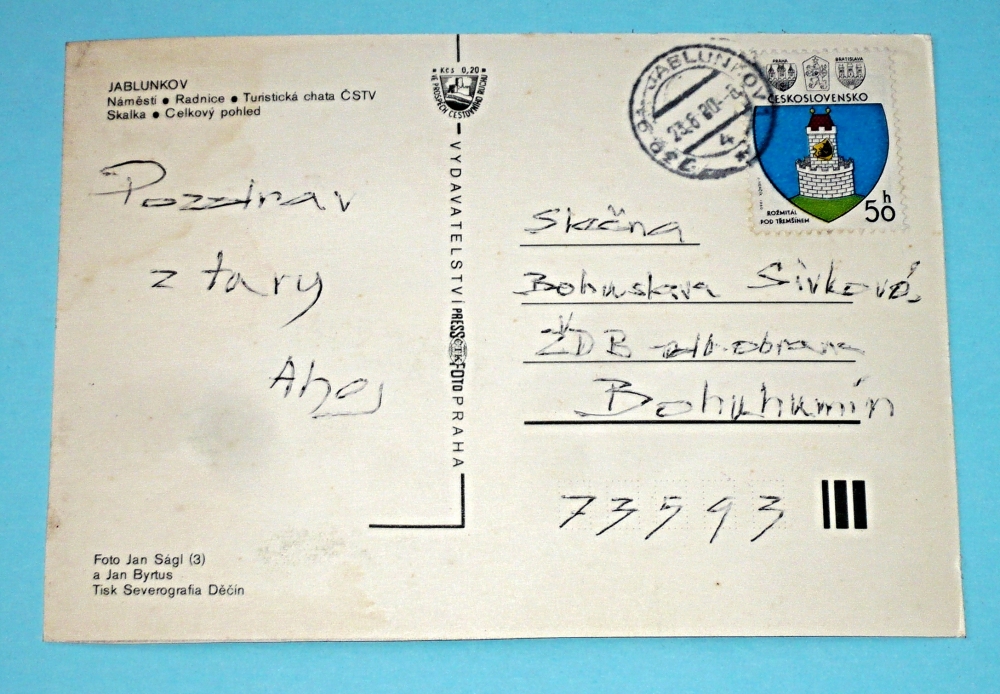 JABLUNKOV
Náměstí • Radnice • Turistická chata ČSTV
Skalka • Celkový pohled
Pozdrav
z tary
Ahoj
Foto Jan Ságl (3)
a Jan Byrtus
Tisk Severografia Děčín
Kčs 0,20
VE PROSPĚCH CESTOVNÍHO RUCHU
VYDAVATELSTVÍ PRESSFOTO PRAHA
ČTK
JABLUNKOV
23.6.80-8
4
739 91
PRAHA
BRATISLAVA
ČESKOSLOVENSKO
ROŽMITÁL
POD TŘEMŠÍNEM
50 h
Bohuslava Sivková
ŽDB
Bohuhumín
73593